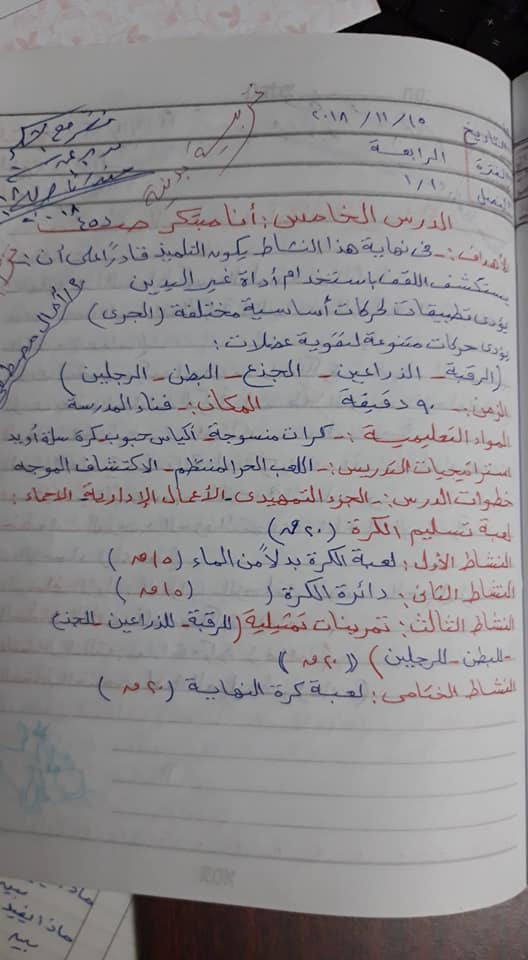 التاريخ ٢٠١٨/١١/١٥
الفترة الرابعة
الفصل ١/١
تربية بدنية
الدرس الخامس: أنا مبتكر صـ
الأهداف:- فى نهاية هذا النشاط يكون التلميذ قادرًا على أن:-
يستكشف اللقف باستخدام أداة غير اليدين
يؤدى تطبيقات لحركات أساسية مختلفة (الجرى)
يؤدى حركات متنوعة لتقوية عضلات:
(الرقبة - الذراعين - الجذع - البطن - الرجلين)
الزمن:- ٩٠ دقيقة المكان:- فناء المدرسة
المواد التعليمية:- كرات منسوجة - أكياس حبوب - كرة سلة أو يد
استراتيجيات التدريس:- اللعب الحر المنتظم - الاكتشاف الموجه
خطوات الدرس:- الجزء التمهيدى - الأعمال الإدارية - الاحماء:
لعبة تسليم الكرة (٢٠ ق)
النشاط الأول: لعبة الكرة بدلاً من الماء (١٥ ق)
النشاط الثانى: دائرة الكرة (١٥ ق)
النشاط الثالث: تمرينات تمثيلية (للرقبة - للذراعين - للجذع
- للبطن - للرجلين) (٢٠ ق)
النشاط الختامى: لعبة كرة النهاية (٢٠ ق)